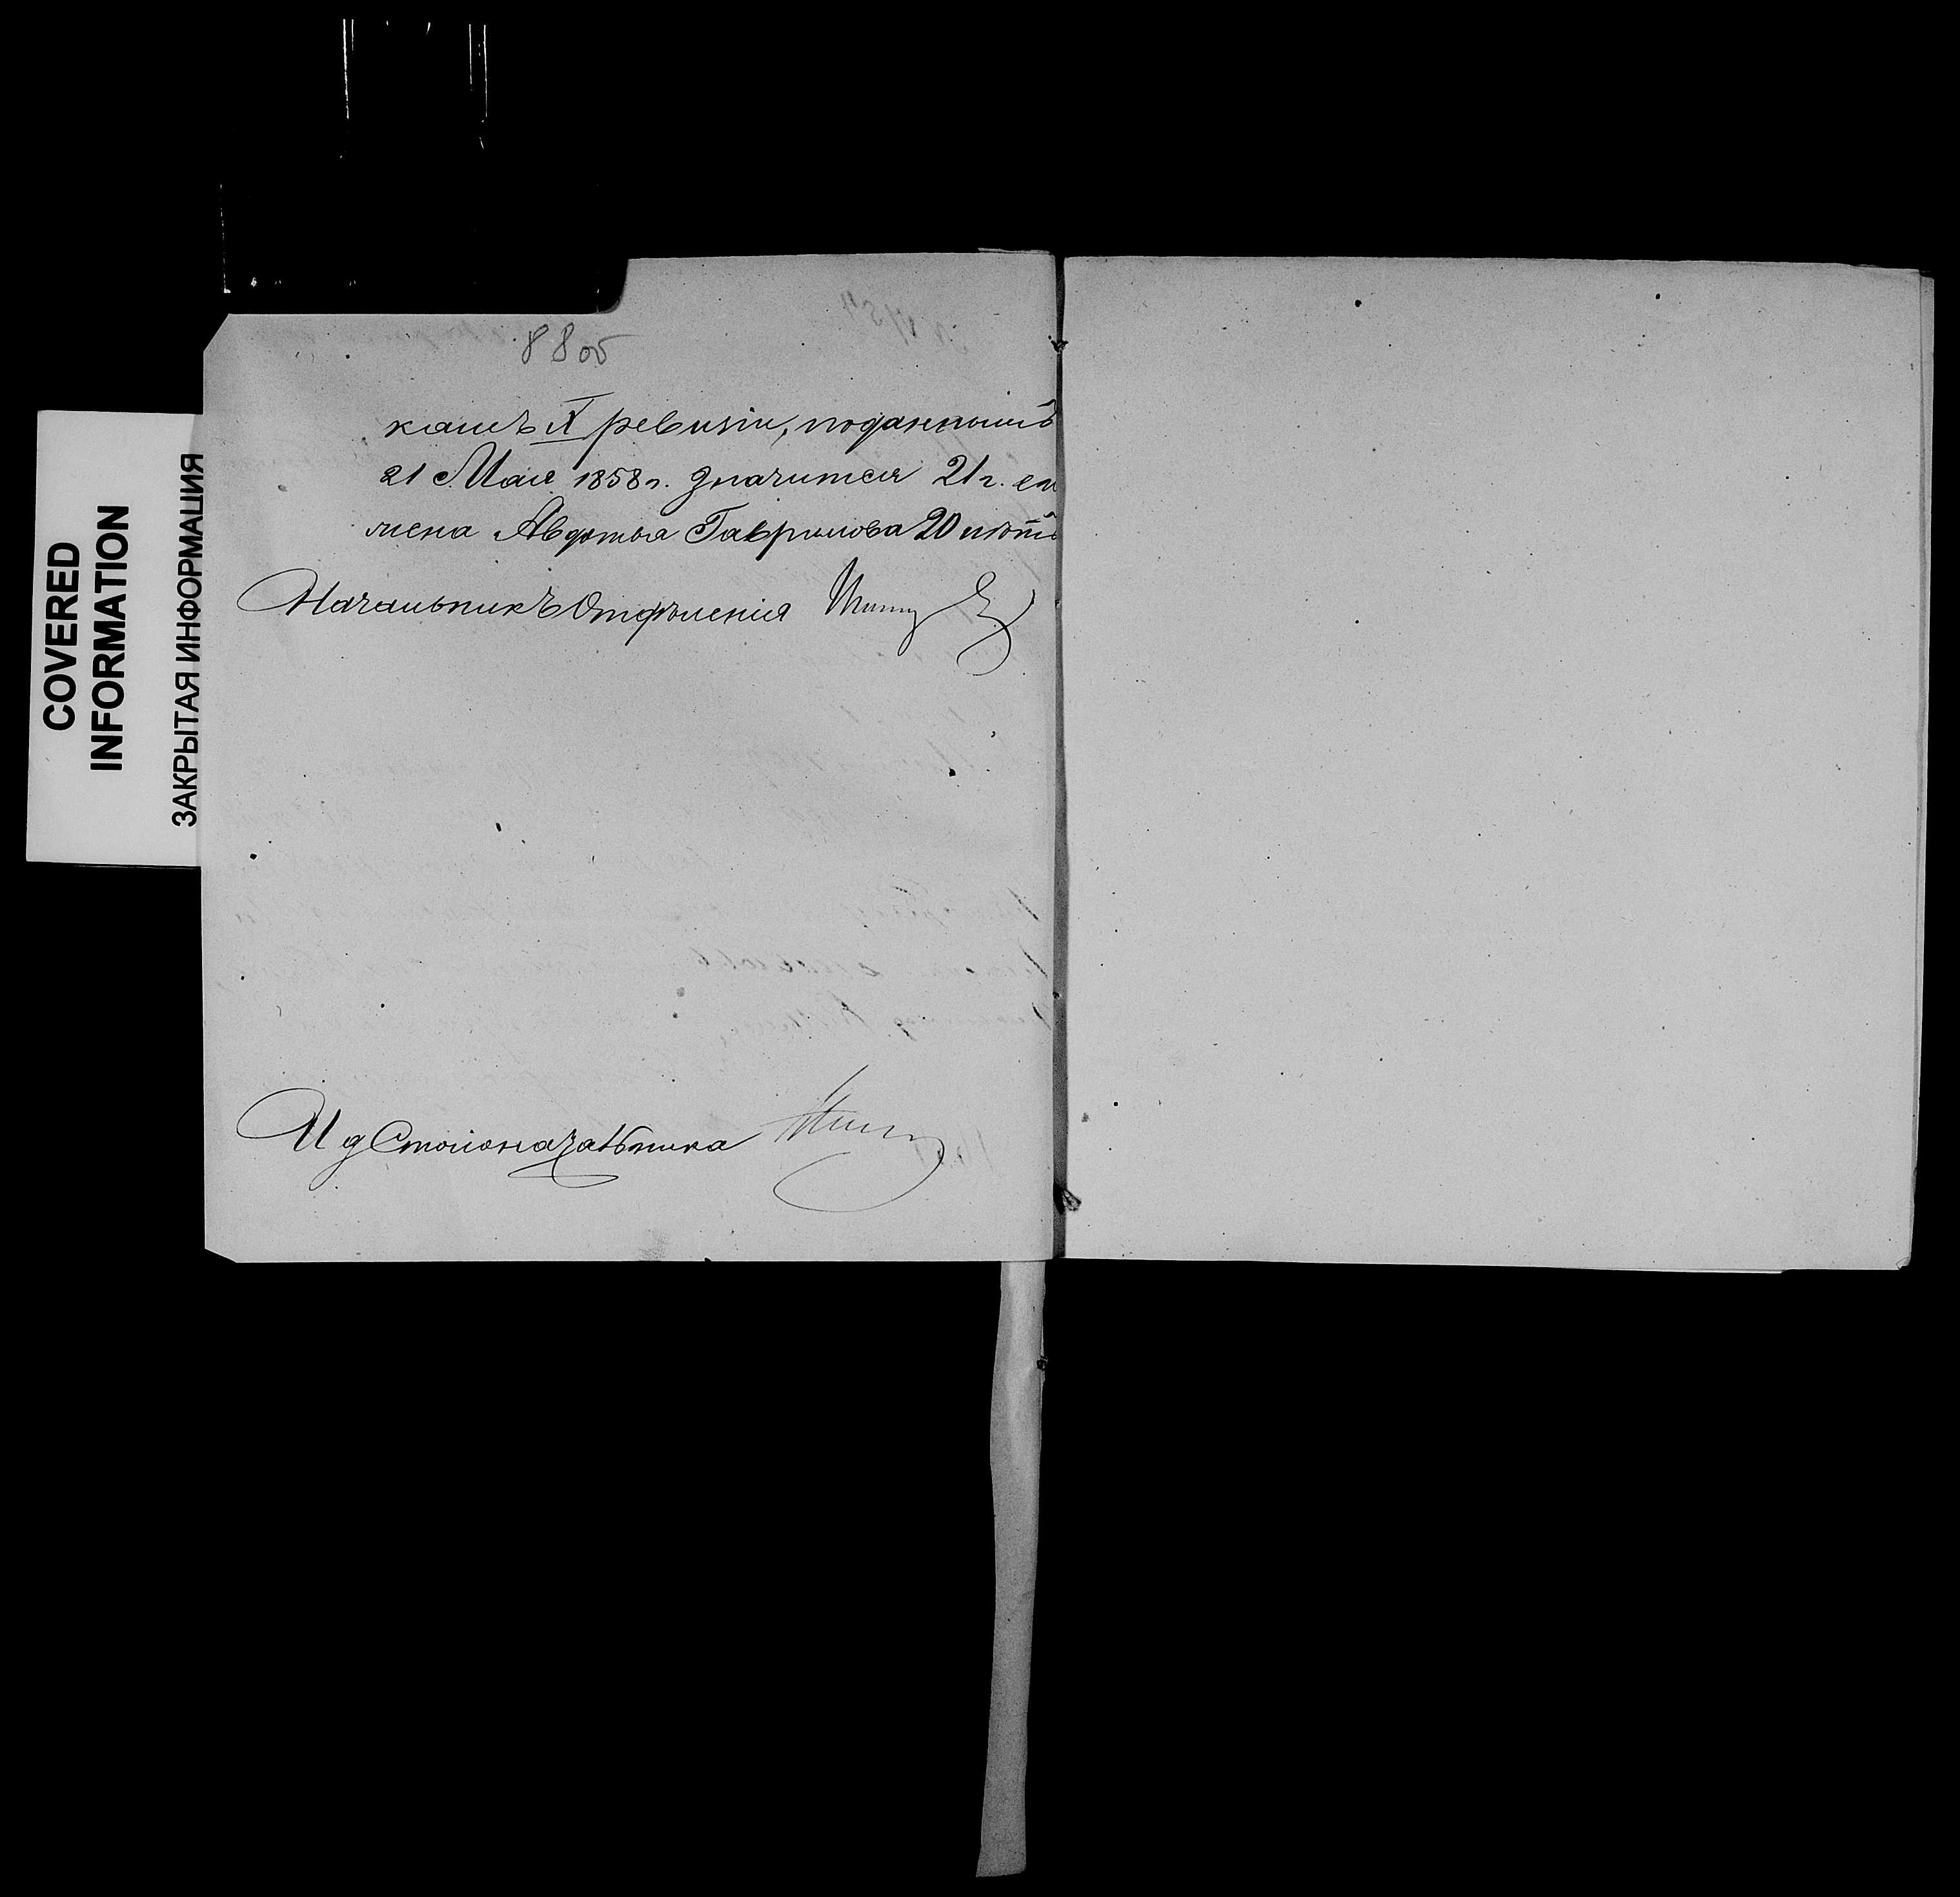 COVERED
INFORMATION
ЗАКРЫТАЯ ИНФОРМАЦИЯ
88 об
камъ X ревизіи, поданнымъ
21 Мая 1858 г. значится 21 г. ем
жена Авдотья Гаврилова 20 лѣтъ
Начальникъ Отдѣленія
И д Столоначальника